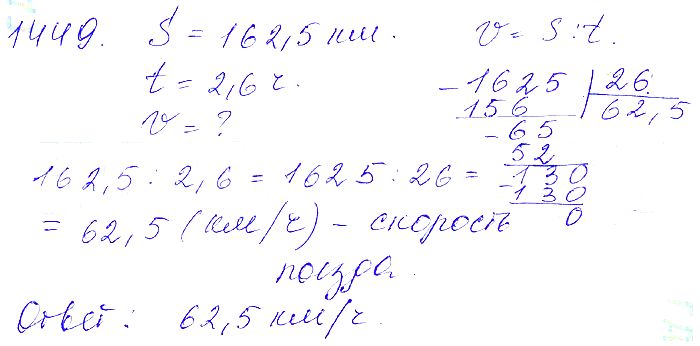 1449. S = 162,5 км. v = S : t.
t = 2,6 ч.
v = ?
- 1625 | 26
156 62,5
- 65
52
- 130
130
0
162,5 : 2,6 = 1625 : 26 =
= 62,5 (км/ч) - скорость
поезда.
Ответ: 62,5 км/ч.